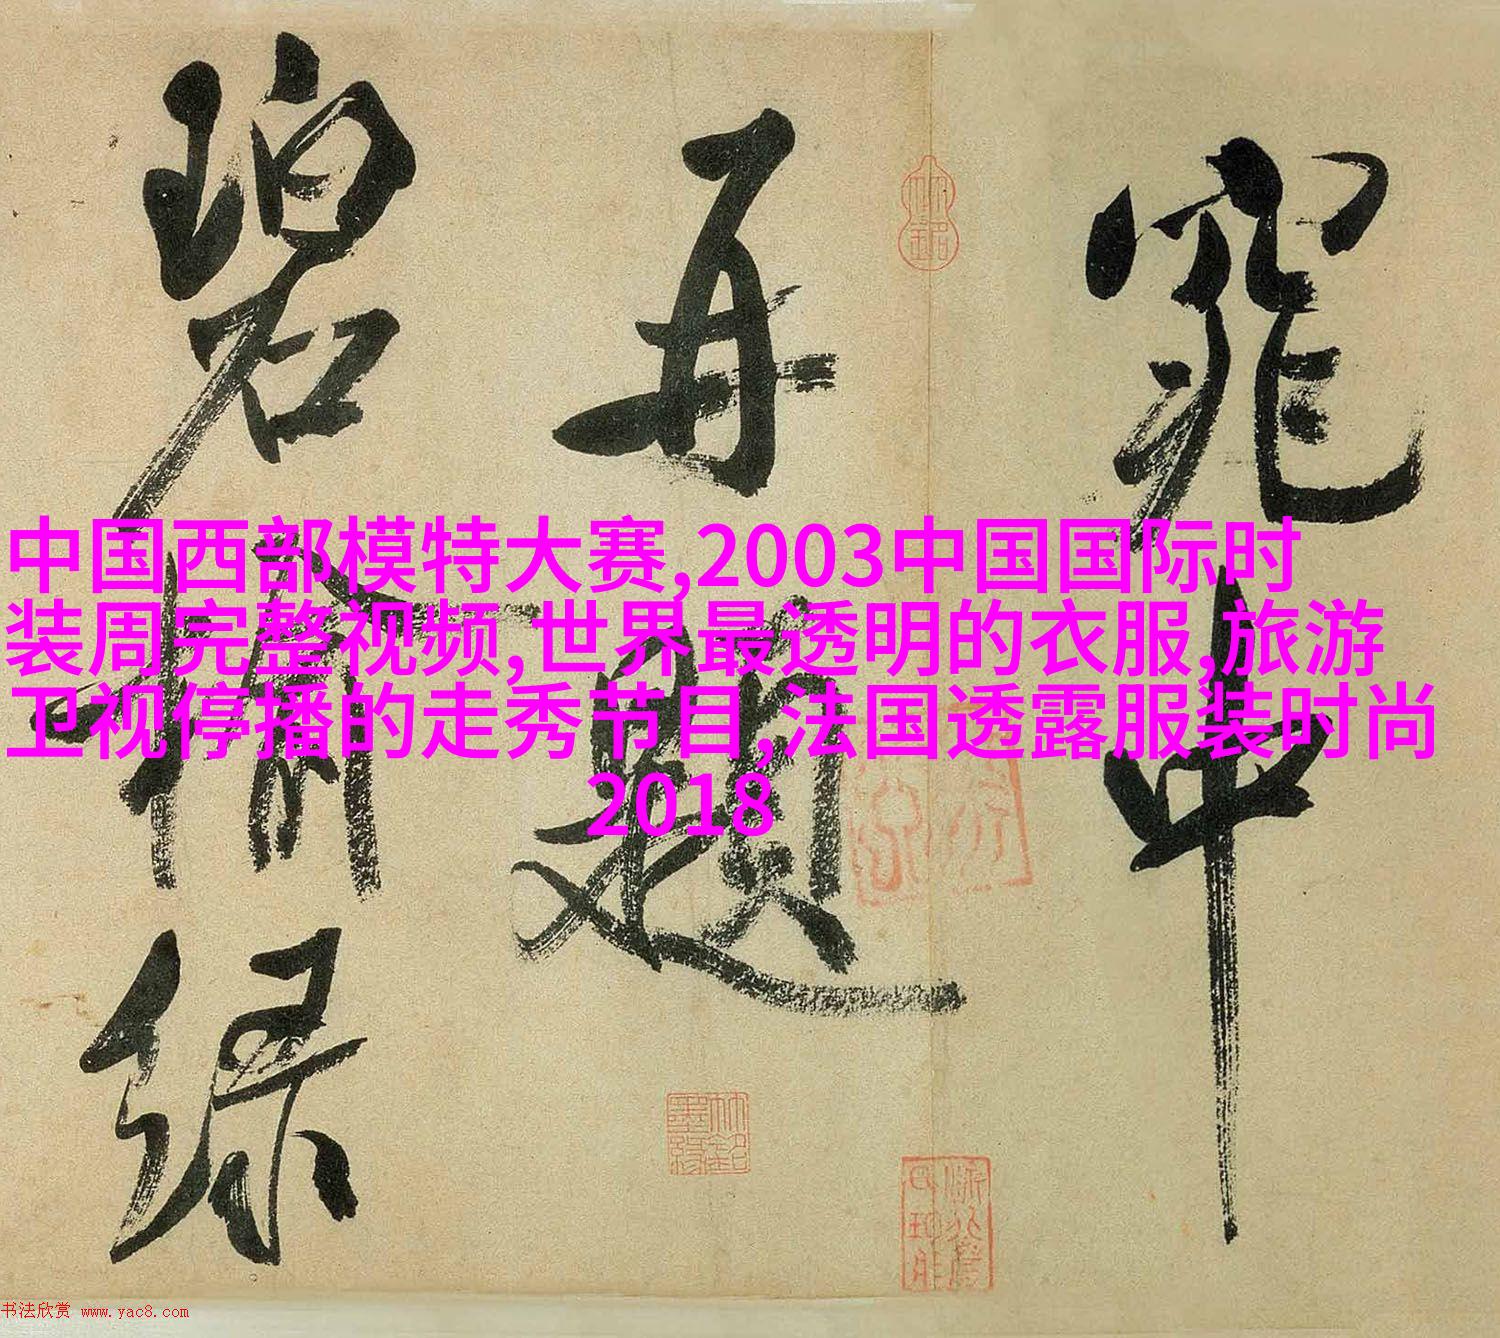 窕中
再題
碧榆綠
中国西部模特大赛,2003中国国际时
装周完整视频,世界最透明的衣服,旅游
卫视停播的走秀节目,法国透露服装时尚
2018
书法欣赏 www.yac8.com